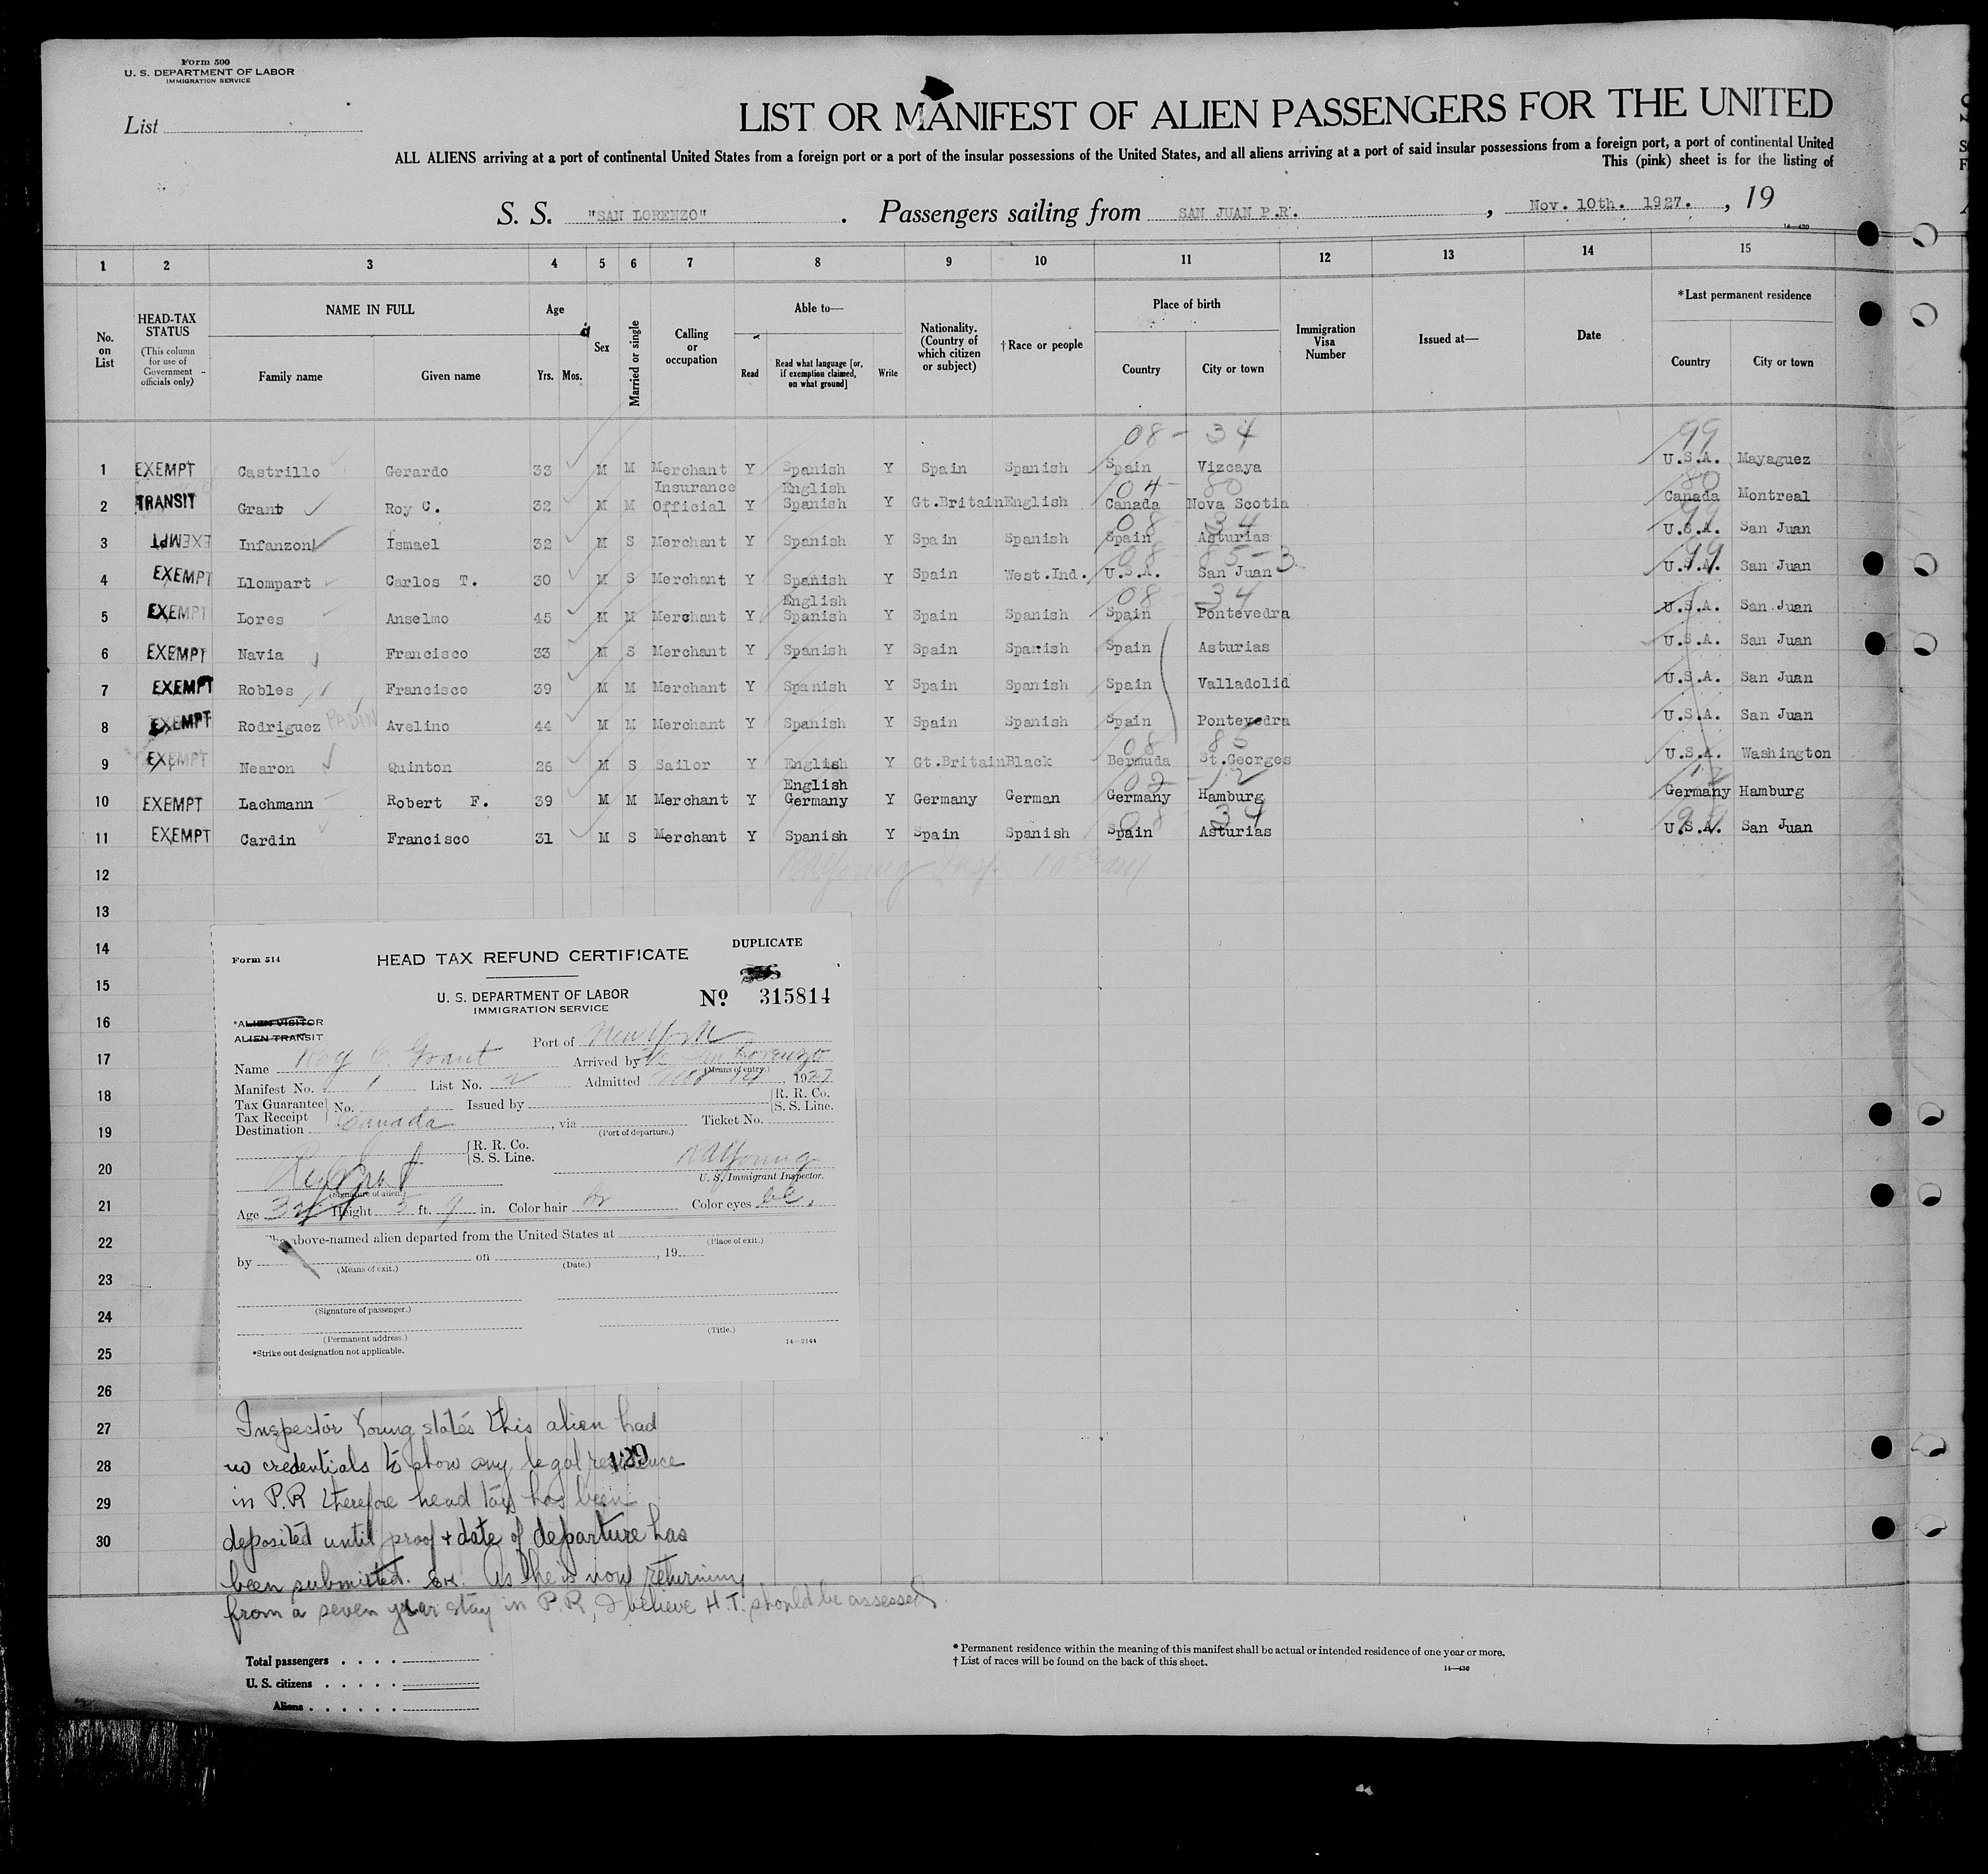 Form 500
U. S. DEPARTMENT OF LABOR
IMMIGRATION SERVICE
List
LIST OR MANIFEST OF ALIEN PASSENGERS FOR THE UNITED
ALL ALIENS arriving at a port of continental United States from a foreign port or a port of the insular possessions of the United States, and all aliens arriving at a port of said insular possessions from a foreign port, a port of continental United
This (pink) sheet is for the listing of
S. S. "SAN LORENZO" . Passengers sailing from SAN JUAN P.R. , Nov. 10th. 1927. , 19
14—430
1 2 3 4 5 6 7 8 9 10 11 12 13 14 15
No. on List
HEAD-TAX STATUS (This column for use of Government officials only)
NAME IN FULL
Family name Given name
Age
Yrs. Mos.
Sex
Married or single
Calling or occupation
Able to—
Read
Read what language [or, if exemption claimed, on what ground]
Write
Nationality. (Country of which citizen or subject)
† Race or people
Place of birth
Country City or town
Immigration Visa Number
Issued at—
Date
* Last permanent residence
Country City or town
08 - 34 99
1 EXEMPT Castrillo Gerardo 33 M M Merchant Y Spanish Y Spain Spanish Spain Vizcaya U.S.A. Mayaguez
Insurance English 04 - 80 80
2 TRANSIT Grant Roy C. 32 M M Official Y Spanish Y Gt.Britain English Canada Nova Scotia Canada Montreal
08 34 99
3 EXEMPT Infanzon Ismael 32 M S Merchant Y Spanish Y Spain Spanish Spain Asturias U.S.A. San Juan
08 - 85-3 99
4 EXEMPT Llompart Carlos T. 30 M S Merchant Y Spanish Y Spain West.Ind. U.S.A. San Juan U.S.A. San Juan
English 08 - 34
5 EXEMPT Lores Anselmo 45 M M Merchant Y Spanish Y Spain Spanish Spain Pontevedra U.S.A. San Juan
6 EXEMPT Navia Francisco 33 M S Merchant Y Spanish Y Spain Spanish Spain Asturias U.S.A. San Juan
7 EXEMPT Robles Francisco 39 M M Merchant Y Spanish Y Spain Spanish Spain Valladolid U.S.A. San Juan
8 EXEMPT Rodriguez PADIN Avelino 44 M M Merchant Y Spanish Y Spain Spanish Spain Pontevedra U.S.A. San Juan
08 85
9 EXEMPT Nearon Quinton 26 M S Sailor Y English Y Gt.Britain Black Bermuda St.Georges U.S.A. Washington
English 02 - 12 12
10 EXEMPT Lachmann Robert F. 39 M M Merchant Y Germany Y Germany German Germany Hamburg Germany Hamburg
08 - 34 99
11 EXEMPT Cardin Francisco 31 M S Merchant Y Spanish Y Spain Spanish Spain Asturias U.S.A. San Juan
12
RAYoung Insp.
13
14
15
16
17
18
19
20
21
22
23
24
25
26
27
28
29
30
Form 514
HEAD TAX REFUND CERTIFICATE
DUPLICATE
U. S. DEPARTMENT OF LABOR
IMMIGRATION SERVICE
No 315814
*ALIEN VISITOR
ALIEN TRANSIT
Port of New York
Name Roy C. Grant Arrived by SS San Lorenzo
(Means of entry.)
Manifest No. 1 List No. 2 Admitted Nov 14, 1927
Tax Guarantee
Tax Receipt
No. Issued by
R. R. Co.
S. S. Line.
Destination Canada , via Ticket No.
(Port of departure.)
R. R. Co.
S. S. Line.
RAYoung
U. S. Immigrant Inspector.
(Signature of alien.)
Age 32 Height 5 ft. 9 in. Color hair br Color eyes bl.
The above-named alien departed from the United States at
(Place of exit.)
by on , 19
(Means of exit.) (Date.)
(Signature of passenger.)
(Permanent address.) (Title.)
*Strike out designation not applicable.
14—2144
Inspector Young states this alien had
no credentials to show any legal residence
129
in P.R therefore head tax has been
deposited until proof + date of departure has
been submitted. As he is now returning
from a seven year stay in P.R, I believe H.T. should be assessed.
Total passengers . . . .
U. S. citizens . . . . .
Aliens . . . . . .
* Permanent residence within the meaning of this manifest shall be actual or intended residence of one year or more.
† List of races will be found on the back of this sheet.
14—430